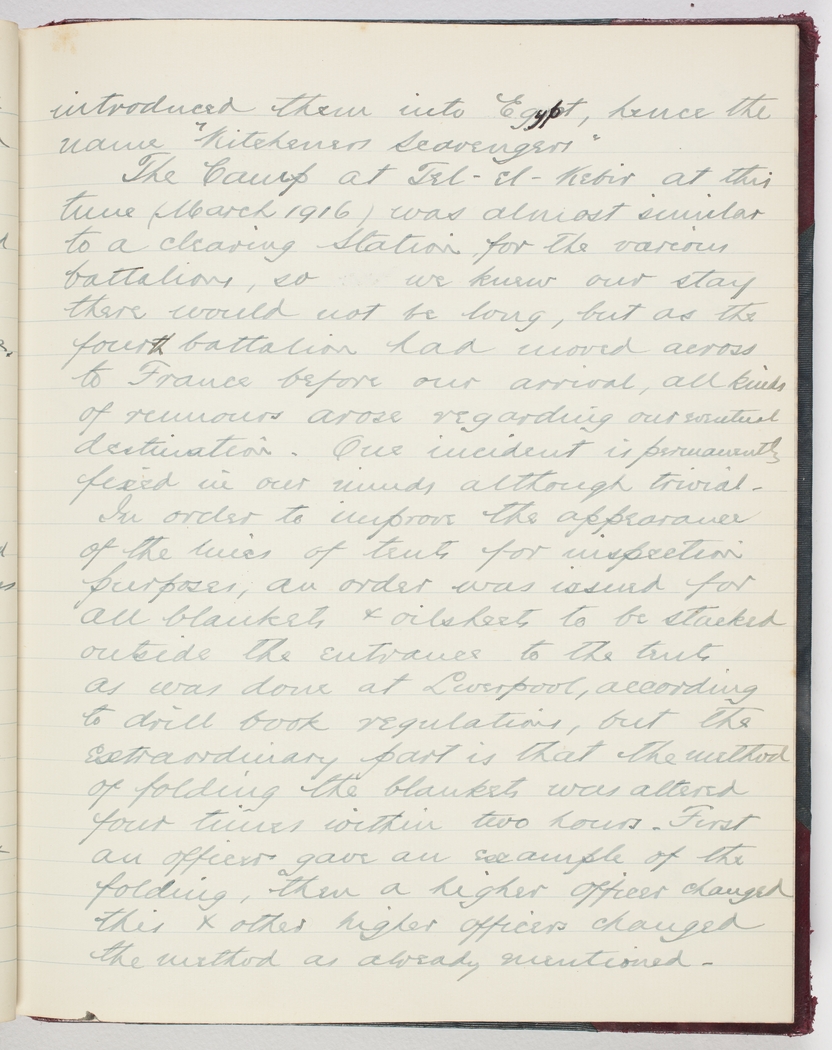 introduced them into Egypt, hence the
name "Kitcheners Scavengers"
The Camp at Tel-el-Kebir at this
time (March 1916) was almost similar
to a clearing station for the various
battalions, so we knew our stay
there would not be long, but as the
fourth battalion had moved across
to France before our arrival, all kinds
of rumours arose regarding our eventual
destination. One incident is permanently
fixed in our minds although trivial.
In order to improve the appearance
of the lines of tents for inspection
purposes, an order was issued for
all blankets & oilsheets to be stacked
outside the entrance to the tents
as was done at Liverpool, according
to drill book regulations, but the
extraordinary part is that the method
of folding the blankets was altered
four times within two hours. First
an officer gave an example of the
folding, then a higher officer changed
this & other higher officers changed
the method as already mentioned.